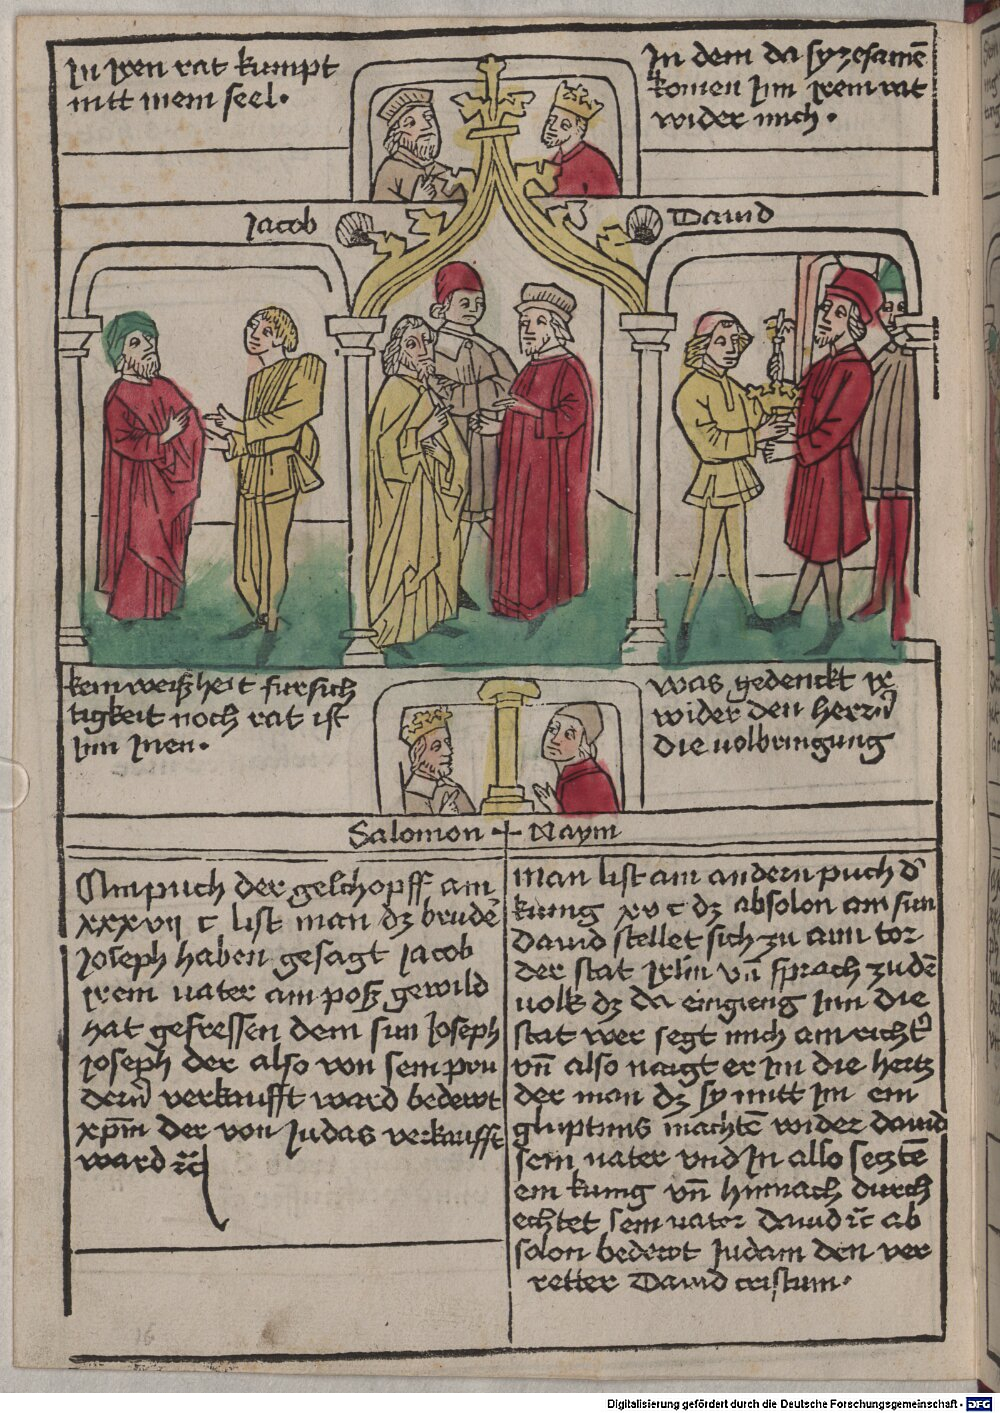 In iren rat kumpt
nitt mein seel.
In dem da sy zesamē
komen Inn irem rat
wider mich.
Jacob
Dauid
kein weißheit fursich
tigkeit noch rat ist
Inn Inen.
was gedenckt ir
wider den herrn̄
die uolbringung
Salomon + Naym
Am puch der geschopff am
xxxvii c list man dz brudē
Joseph haben gesagt Jacob
irem uater am poß gewild
hat gefressen dem sun Joseph
Joseph der also von sein pru
dern̄ verkaufft ward bedewt
xp̄m der von Judas verkaufft
ward ⁊c̄
Man list am andern puch d̄
kunig xv c dz absolon am sun
Dauid stellet sich zu aim tor
der stat Irl̄m vn̄ sprach zu dē
uolk dz da eingieng Inn die
stat wer setzt mich am richt̄
vn̄ also naigt er Im die hertz
der man dz sy mitt Im ein
gluptnus machtē wider dauid
sein uater vnd In also seczte
ein kunig vn̄ hinnach durch
echtet sein uater dauid ⁊c̄ ab
solon bedewt Judam den ver
retter Dauid cristum.
16
Digitalisierung gefördert durch die Deutsche Forschungsgemeinschaft - DFG